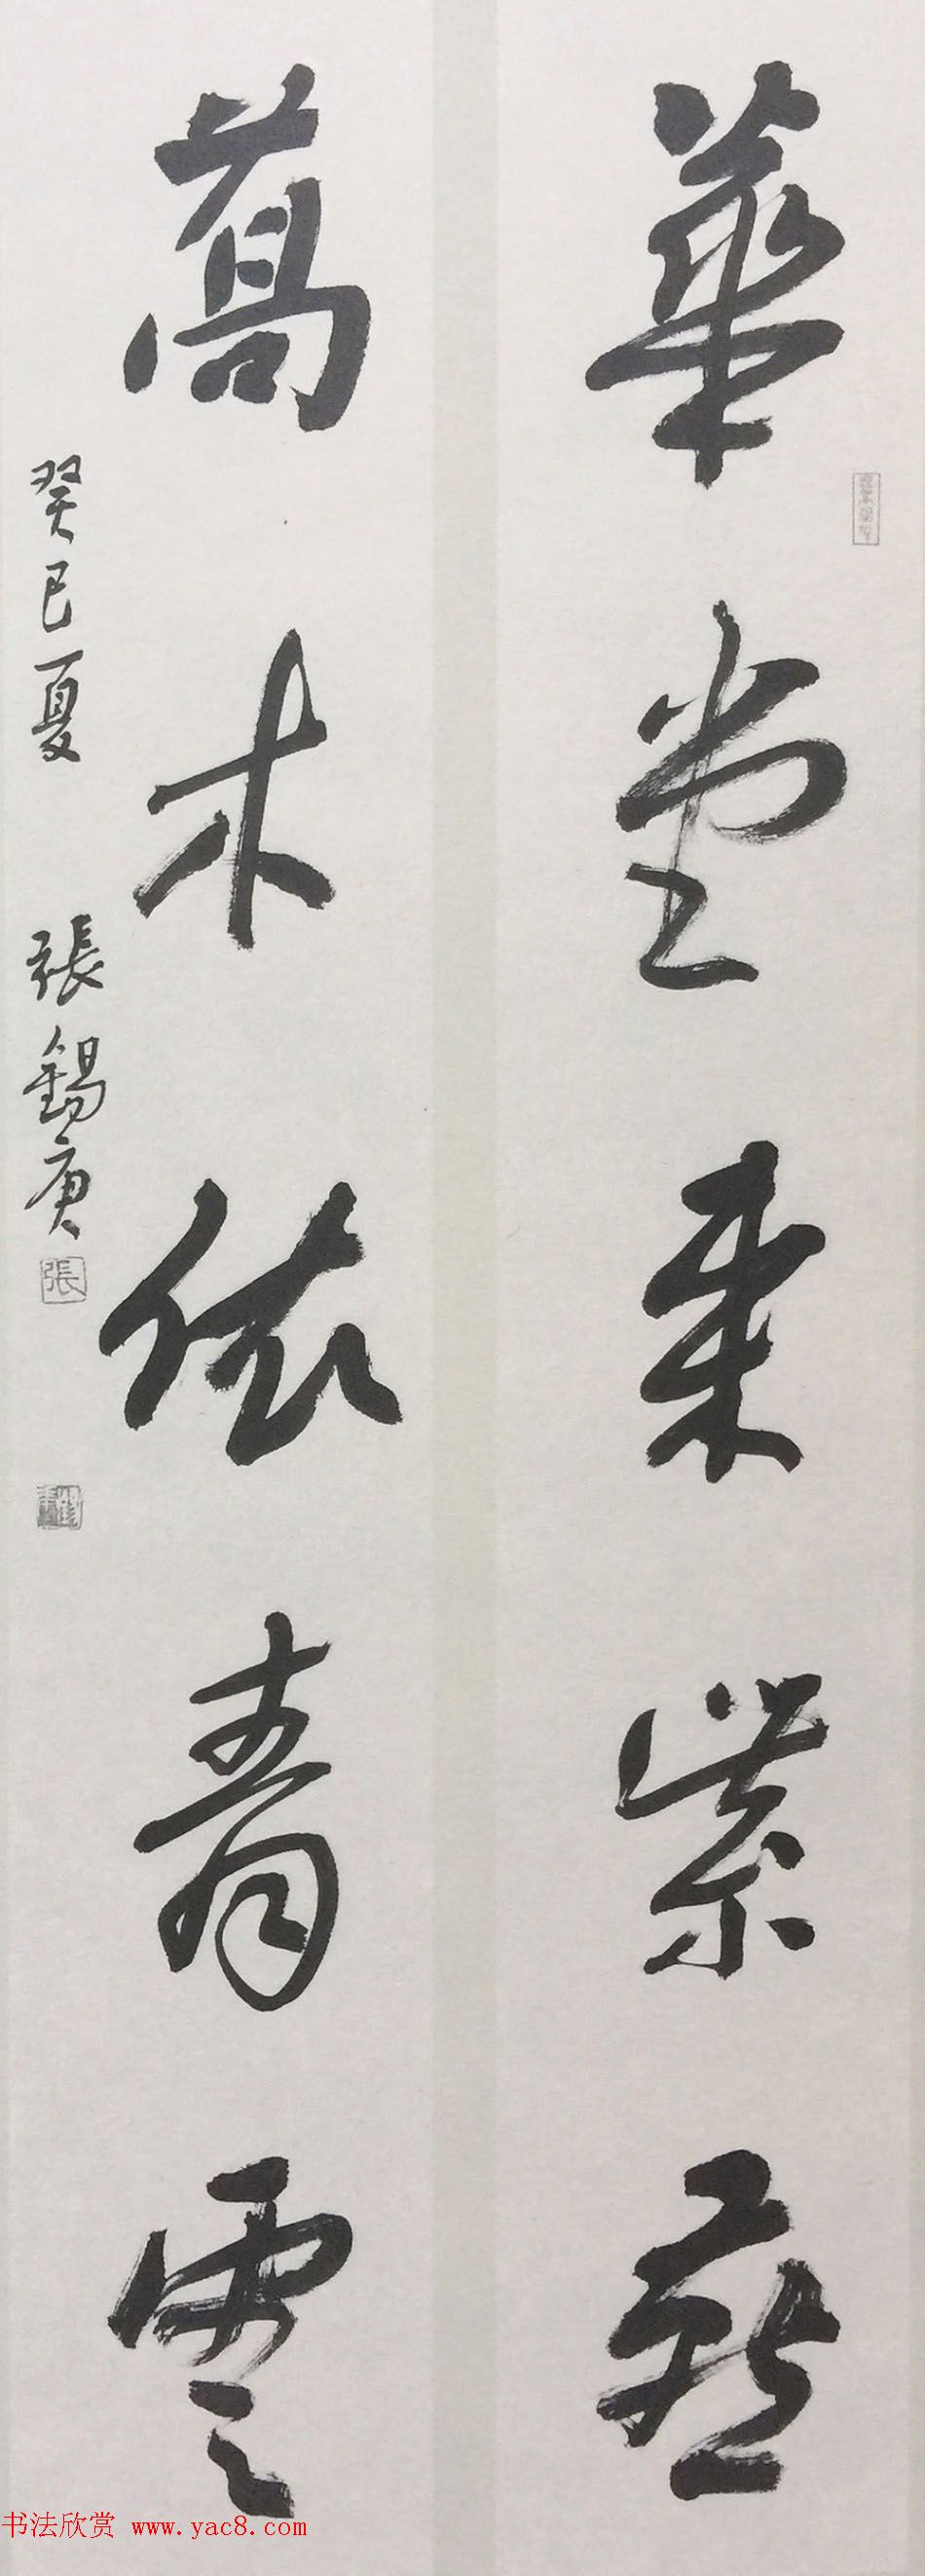 華堂來紫燕
喬木依青雲
癸巳夏 張錫庚
張
书法欣赏 www.yac8.com